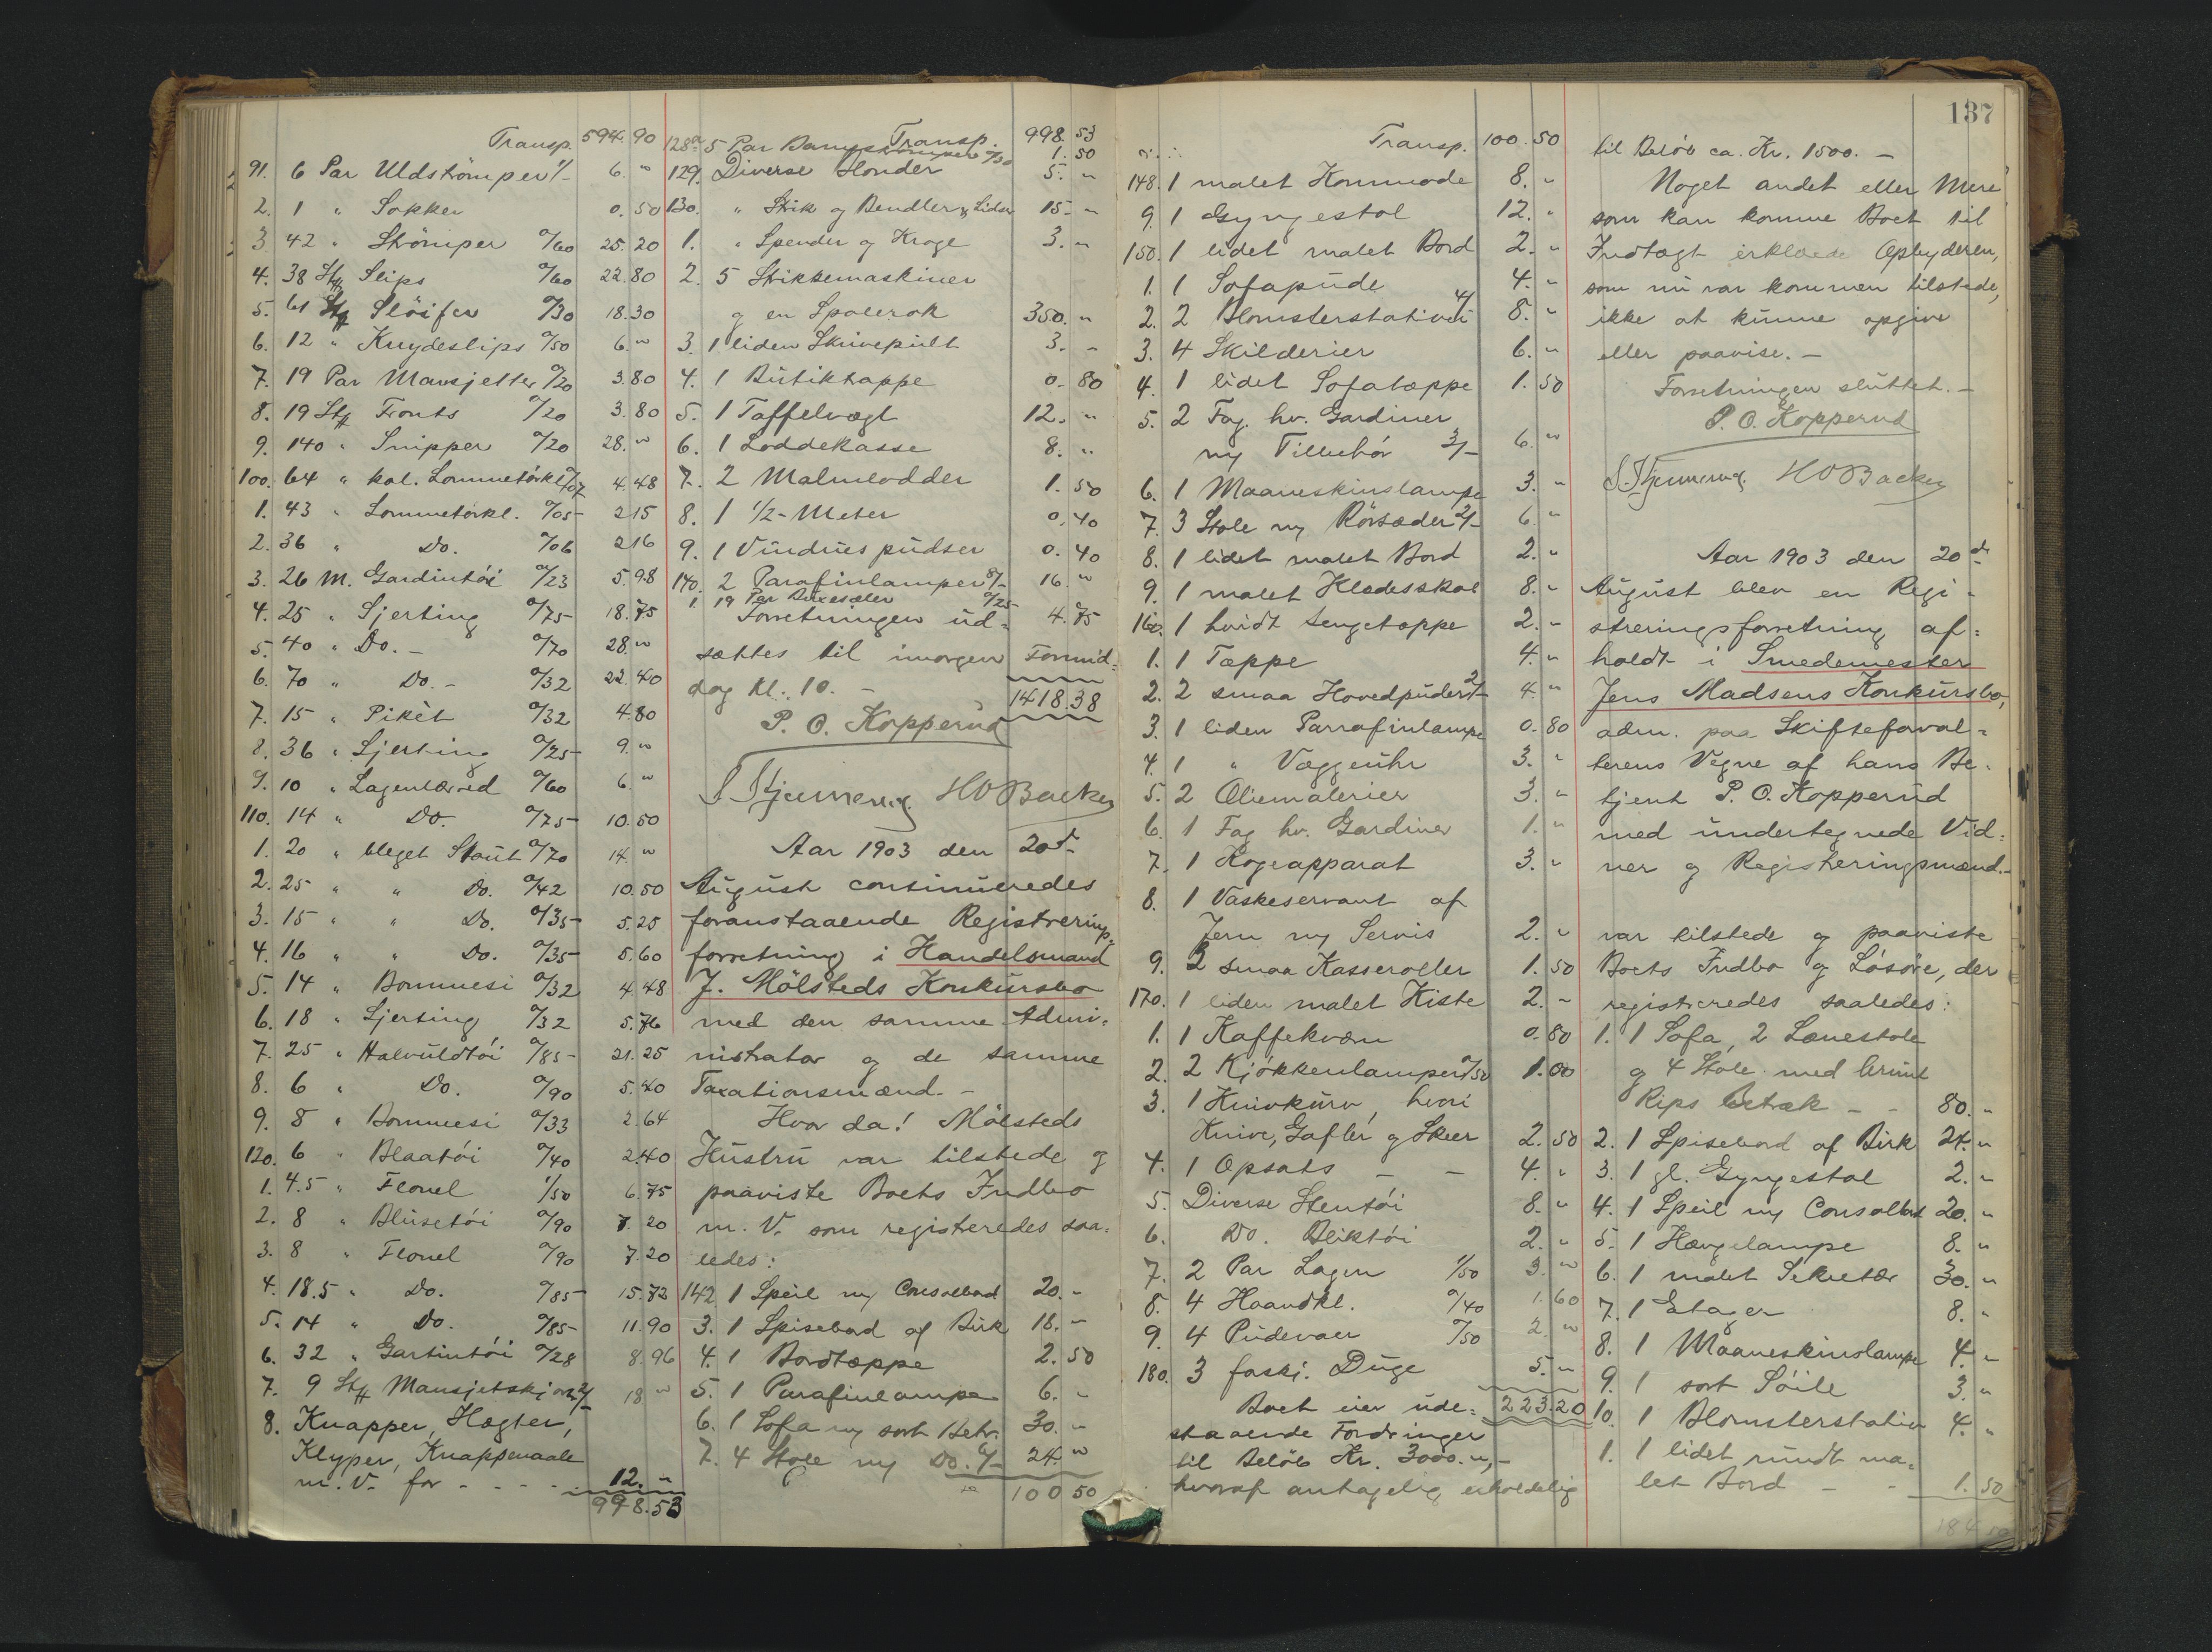 Transp. 594.90
91. 6 Par Uldströmper 1/- 6. "
2. 1 " Sokker 0.50
3 42 " Strömper 0/60 25.20
4. 38 Stk Slips 0/60 22.80
5. 61 Stk Slöifer 0/30 18.30
6. 12 " Knydeslips 0/50 6. "
7. 19 Par Mansjetter 0/20 3.80
8. 19 Stk Fronts 0/20 3.80
9. 140 " Snipper 0/20 28. "
100. 64 " kol. Lommetörkl. 0/07 4.48
1. 43 " Lommetörkl. 0/05 2.15
2. 36 " Do. 0/06 2.16
3. 26 M. Gardintöi 0/23 5.98
4. 25 " Sjerting 0/75 18.75
5. 40 " Do. - 0/70 28. "
6. 70 " Do. - 0/32 22.40
7. 15 " Pikèt 0/32 4.80
8. 36 " Sjerting 0/25 9. "
9. 10 " Lagenlærred 0/60 6. "
110. 14 " Do. 0/75 10.50
1. 20 " bleget Stout 0/70 14. "
2. 25 " " Do. 0/42 10.50
3. 15 " " Do. 0/35 5.25
4. 16 " " Do. 0/35 5.60
5. 14 " Bommesi 0/32 4.48
6. 18 " Sjerting 0/32 5.76
7. 25 " Halvuldtöi 0/85 21.25
8. 6 " Do. 0/90 5.40
9. 8 " Bommesi 0/33 2.64
120. 6 " Blaatöi 0/40 2.40
1. 4.5 " Flonel 1/50 6.75
2. 8 " Blusetöi 0/90 7.20
3. 8 " Flonel 0/90 7.20
4. 18.5 " Do. 0/85 15.72
5. 14 " Do. 0/85 11.90
6. 32 " Gartintöi 0/28 8.96
7. 9 Stk Mansjetskjor. 2/- 18 "
8. Knapper, Hægter,
Klyper, Knappenaale
m. V. for - - - - 12. "
998.53
Transp. 998.53
128a 5 Par Barnestrømper 0/30 1.50
129. Diverse Honder 5. "
130. " Strik og Bendler & Lidser 15. "
1. " Spender og Kroge 3. "
2. 5 Strikkemaskiner
og en Spolerok 350. "
3. 1 liden Skrivepult 3. -
4. 1 Butiktrappe 0.80
5. 1 Taffelvægt 12. "
6. 1 Loddekasse 8. "
7. 2 Malmlodder 1.50
8. 1 1/2-Meter 0.40
9. 1 Vinduespudser 0.40
140. 2 Parafinlamper 8/- 16. "
1. 19 Par Buxesæler 0/25 4.75
Forretningen ud=
sættes til imorgen Formid=
dag Kl. 10. -
1418.38
P. O. Kopperud
HO Backer
Aar 1903 den 20d
August continueredes
foranstaaende Registrerings=
forretning i Handelsmand
J. Mölsteds Konkursbo
med den samme Admi=
nistrator og de samme
Taxationsmænd. -
Hvor da! Mölsteds
Hustru var tilstede og
paaviste Boets Indbo
m. V. som registeredes saa=
ledes:
142 1 Speil m/ Consolbord 20. -
3. 1 Spisebord af Birk 18. -
4. 1 Bordtæppe 2.50
5. 1 Parafinlampe 6. -
6. 1 Sofa m/ sort Betr. 30. -
7. 4 Stole m/ Do. 6/- 24. "
100 50
137
Transp. 100.50
148. 1 malet Kommode 8. "
9. 1 Gyngestol 12. "
150. 1 lidet malet Bord 2. "
1. 1 Sofapude 4. "
2. 2 Blomsterstativer 4/ 8. "
3. 4 Skilderier 6. "
4. 1 lidet Sofatæppe 1.50
5. 2 Fag. hv. Gardiner
m/ Tilbehör 3/- 6. "
6. 1 Maaneskinslampe 3. "
7. 3 Stole m/ Rörsæder 2/- 6. "
8. 1 lidet malet Bord 2. "
9. 1 malet Klædesskab 8. "
160. 1 hvidt Sengetæppe 2. "
1. 1 Tæppe 4. "
2. 2 smaa Hovedpuder 2/- 4. "
3. 1 liden Parrafinlampe 0.80
4. 1 " Væggeuhr 3. "
5. 2 Oliemalerier 3. "
6. 1 Fag hv. Gardiner 1. "
7. 1 Kogeapparat 3. "
8. 1 Vaskeservant af
Jern m/ Servis 2. "
9. 2 smaa Kasseroller 1.50
170. 1 liden malet Kiste 2. "
1. 1 Kaffekværn 0.80
2. 2 Kjökkenlamper 0/50 1.00
3. 1 Knivkurv, hvori
Knive, Gafler og Skeer 2.50
4. 1 Opsats - - 4. "
5. Diverse Stentöi 8. "
6. Do. Bliktöi 2. "
7. 2 Par Lagen 1/50 3. "
8. 4 Haandkl. 0/40 1.60
9. 4 Pudevaer 0/50 2. "
180. 3 forskj. Duge 5. "
Boet eier ude= 223.20
staaende Fordringer
til Belöb Kr. 3000. ", -
hvoraf antagelig erholdelig
til Belöb ca. Kr. 1500. -
Noget andet eller Mere
som kan komme Boet til
Indtægt erklærede Opbyderen,
som nu var kommen tilstede,
ikke at kunne opgive
eller paavise. -
Forretningen sluttet. -
P. O. Kopperud
HO Backer
Aar 1903 den 20de
August blev en Regi-
streringsforretning af=
holdt i Smedemester
Jens Madsens Konkursbo,
adm. paa Skifteforval=
terens Vegne af hans Be-
tjent P. O. Kopperud
med undertegnede Vid=
ner og Registreringsmænd. -
var tilstede og paaviste
Boets Indbo og Lösöre, der
registreredes saaledes:
1. 1 Sofa, 2 Lænestole
og 4 Stole med brunt
Rips Betræk - - 80. "
2. 1 Spisebord af Birk 24. "
3. 1 gl. Gyngestol 2. "
4. 1 Speil m/ Consolbord 20. "
5. 1 Hængelampe 8. "
6. 1 malet Sekretær 30. "
7. 1 Etager 8. "
8. 1 Maaneskinslampe 4. "
9. 1 sort Söile 3. "
10. 1 Blomsterstativ 4. "
1. 1 lidet rundt ma=
let Bord - - 1.50
184.50